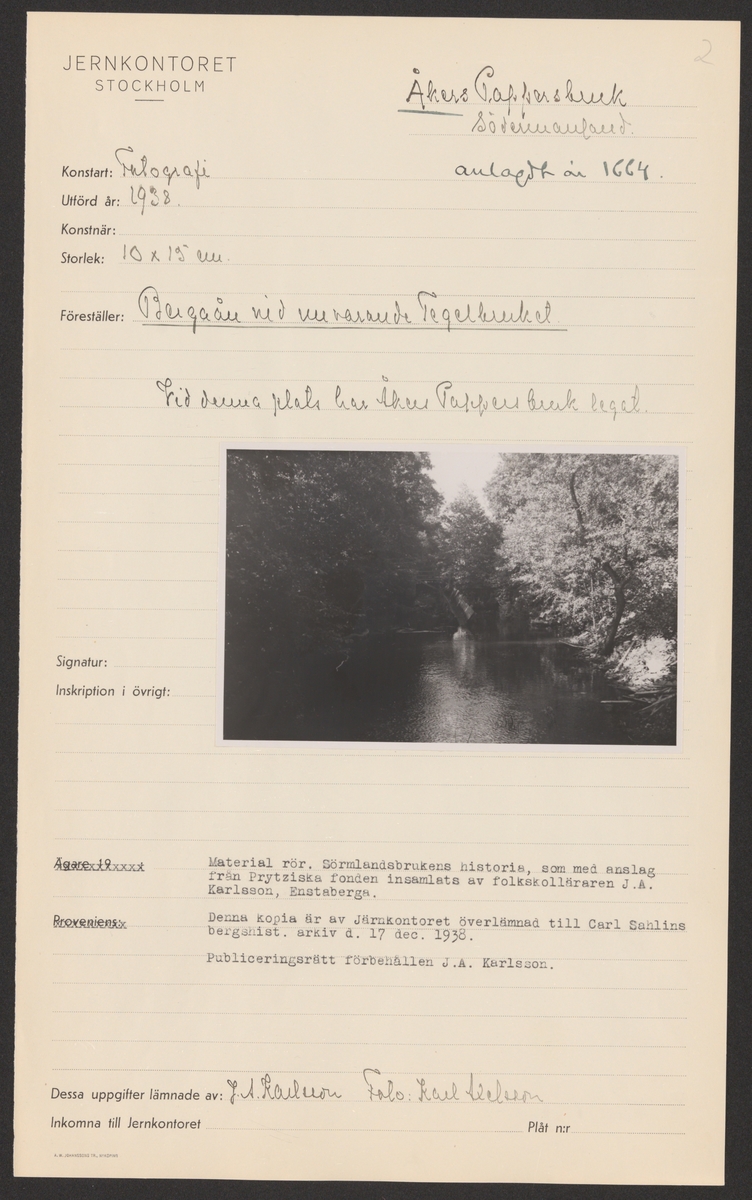 2
JERNKONTORET
STOCKHOLM
Åkers Pappersbruk
Södermanland.
anlagdt år 1664.
Konstart: Fotografi
Utförd år: 1938.
Konstnär:
Storlek: 10 x 15 cm.
Föreställer: Bergaån vid nuvarande Tegelbruket.
Vid denna plats har Åkers Pappersbruk legat.
Signatur:
Inskription i övrigt:
Ägare 19
Material rör. Sörmlandsbrukens historia, som med anslag
från Prytziska fonden insamlats av folkskolläraren J.A.
Karlsson, Enstaberga.
Proveniens:
Denna kopia är av Järnkontoret överlämnad till Carl Sahlins
bergshist. arkiv d. 17 dec. 1938.
Publiceringsrätt förbehållen J.A. Karlsson.
Dessa uppgifter lämnade av: J.A. Karlsson Foto: Karl Axelsson
Inkomna till Jernkontoret
Plåt n:r